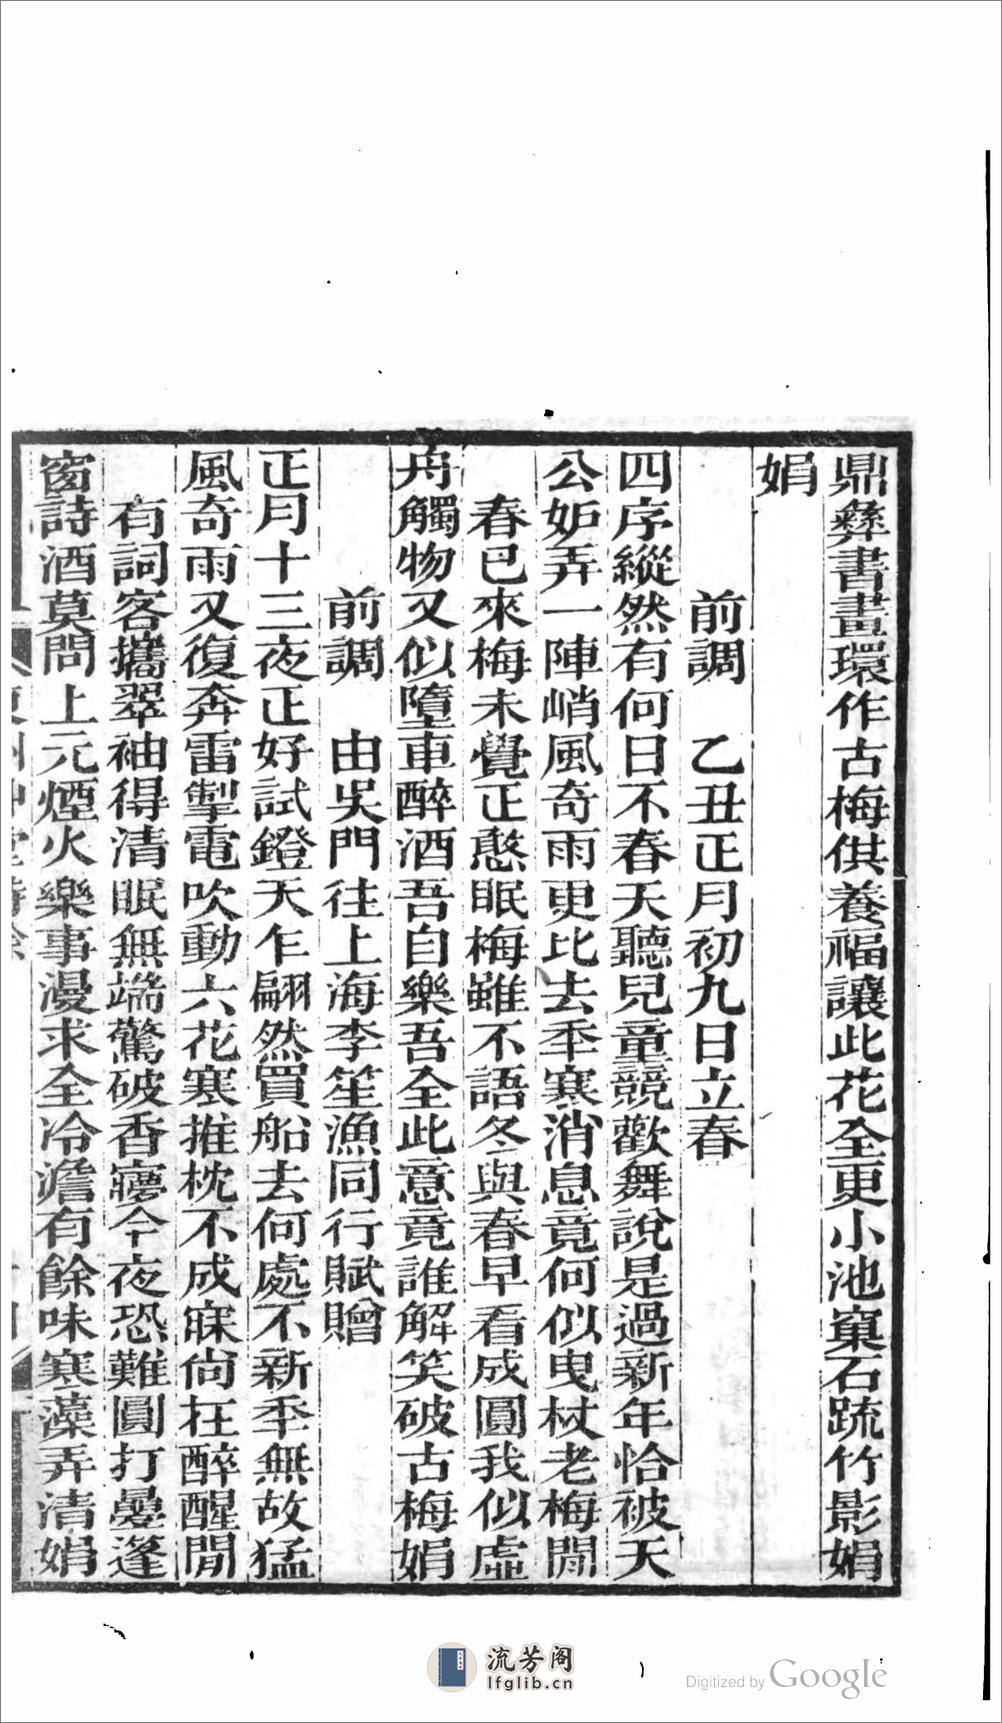 鼎彝書畫環作古梅供養福讓此花全更小池窠石疏竹影娟
娟
前調　乙丑正月初九日立春
四序縱然有何日不春天聽兒童競歡舞說是過新年恰被天
公妒弄一陣峭風奇雨更比去秊寒消息竟何似曳杖老梅間
春已來梅未覺正憨眠梅雖不語冬與春早看成圓我似虛
舟觸物又似墮車醉酒吾自樂吾全此意竟誰解笑破古梅娟
前調　由吳門往上海李笙漁同行賦贈
正月十三夜正好試鐙天乍翩然買船去何處不新秊無故猛
風奇雨又復奔雷掣電吹動六花寒推枕不成寐尙在醉醒閒
有詞客攜翠袖得清眠無端驚破香㝱今夜恐難圓打疊篷
窗詩酒莫問上元煙火樂事漫求全冷澹有餘味寒藻弄清娟
流芳阁
lfglib.cn
Digitized by Google